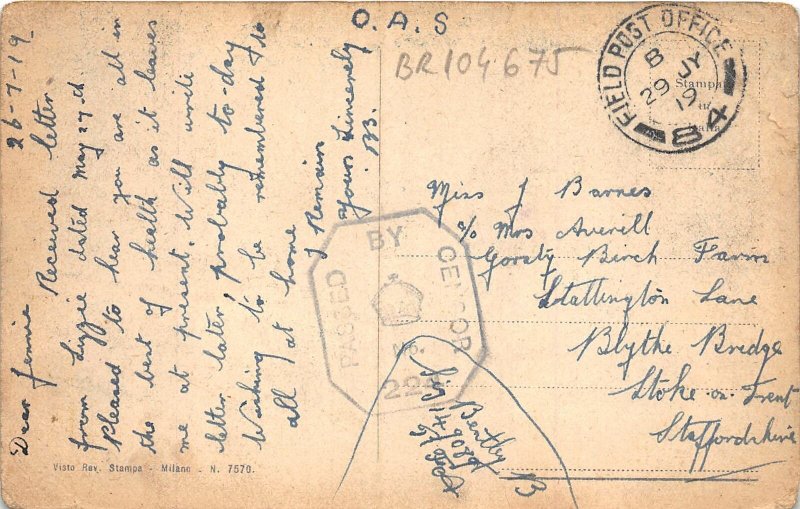 26-7-19
Dear Jennie Received letter
from Lizzie dated May 27th
Pleased to hear you are all in
the best of health as it leaves
me at present. Will write
letter later, probably to-day
Wishing to be remembered to
all at home
I Remain
Yours Sincerely
B.
O.A.S
BR104675
FIELD POST OFFICE
B
29 JY
19
84
Stampa
in
Miss J Barnes
c/o Mrs Averill
Gorsty Birch Farm
Stallington Lane
Blythe Bridge
Stoke on Trent
Staffordshire
PASSED BY CENSOR
No.
Bentley B
Visto Rev. Stampa - Milano - N. 7570.